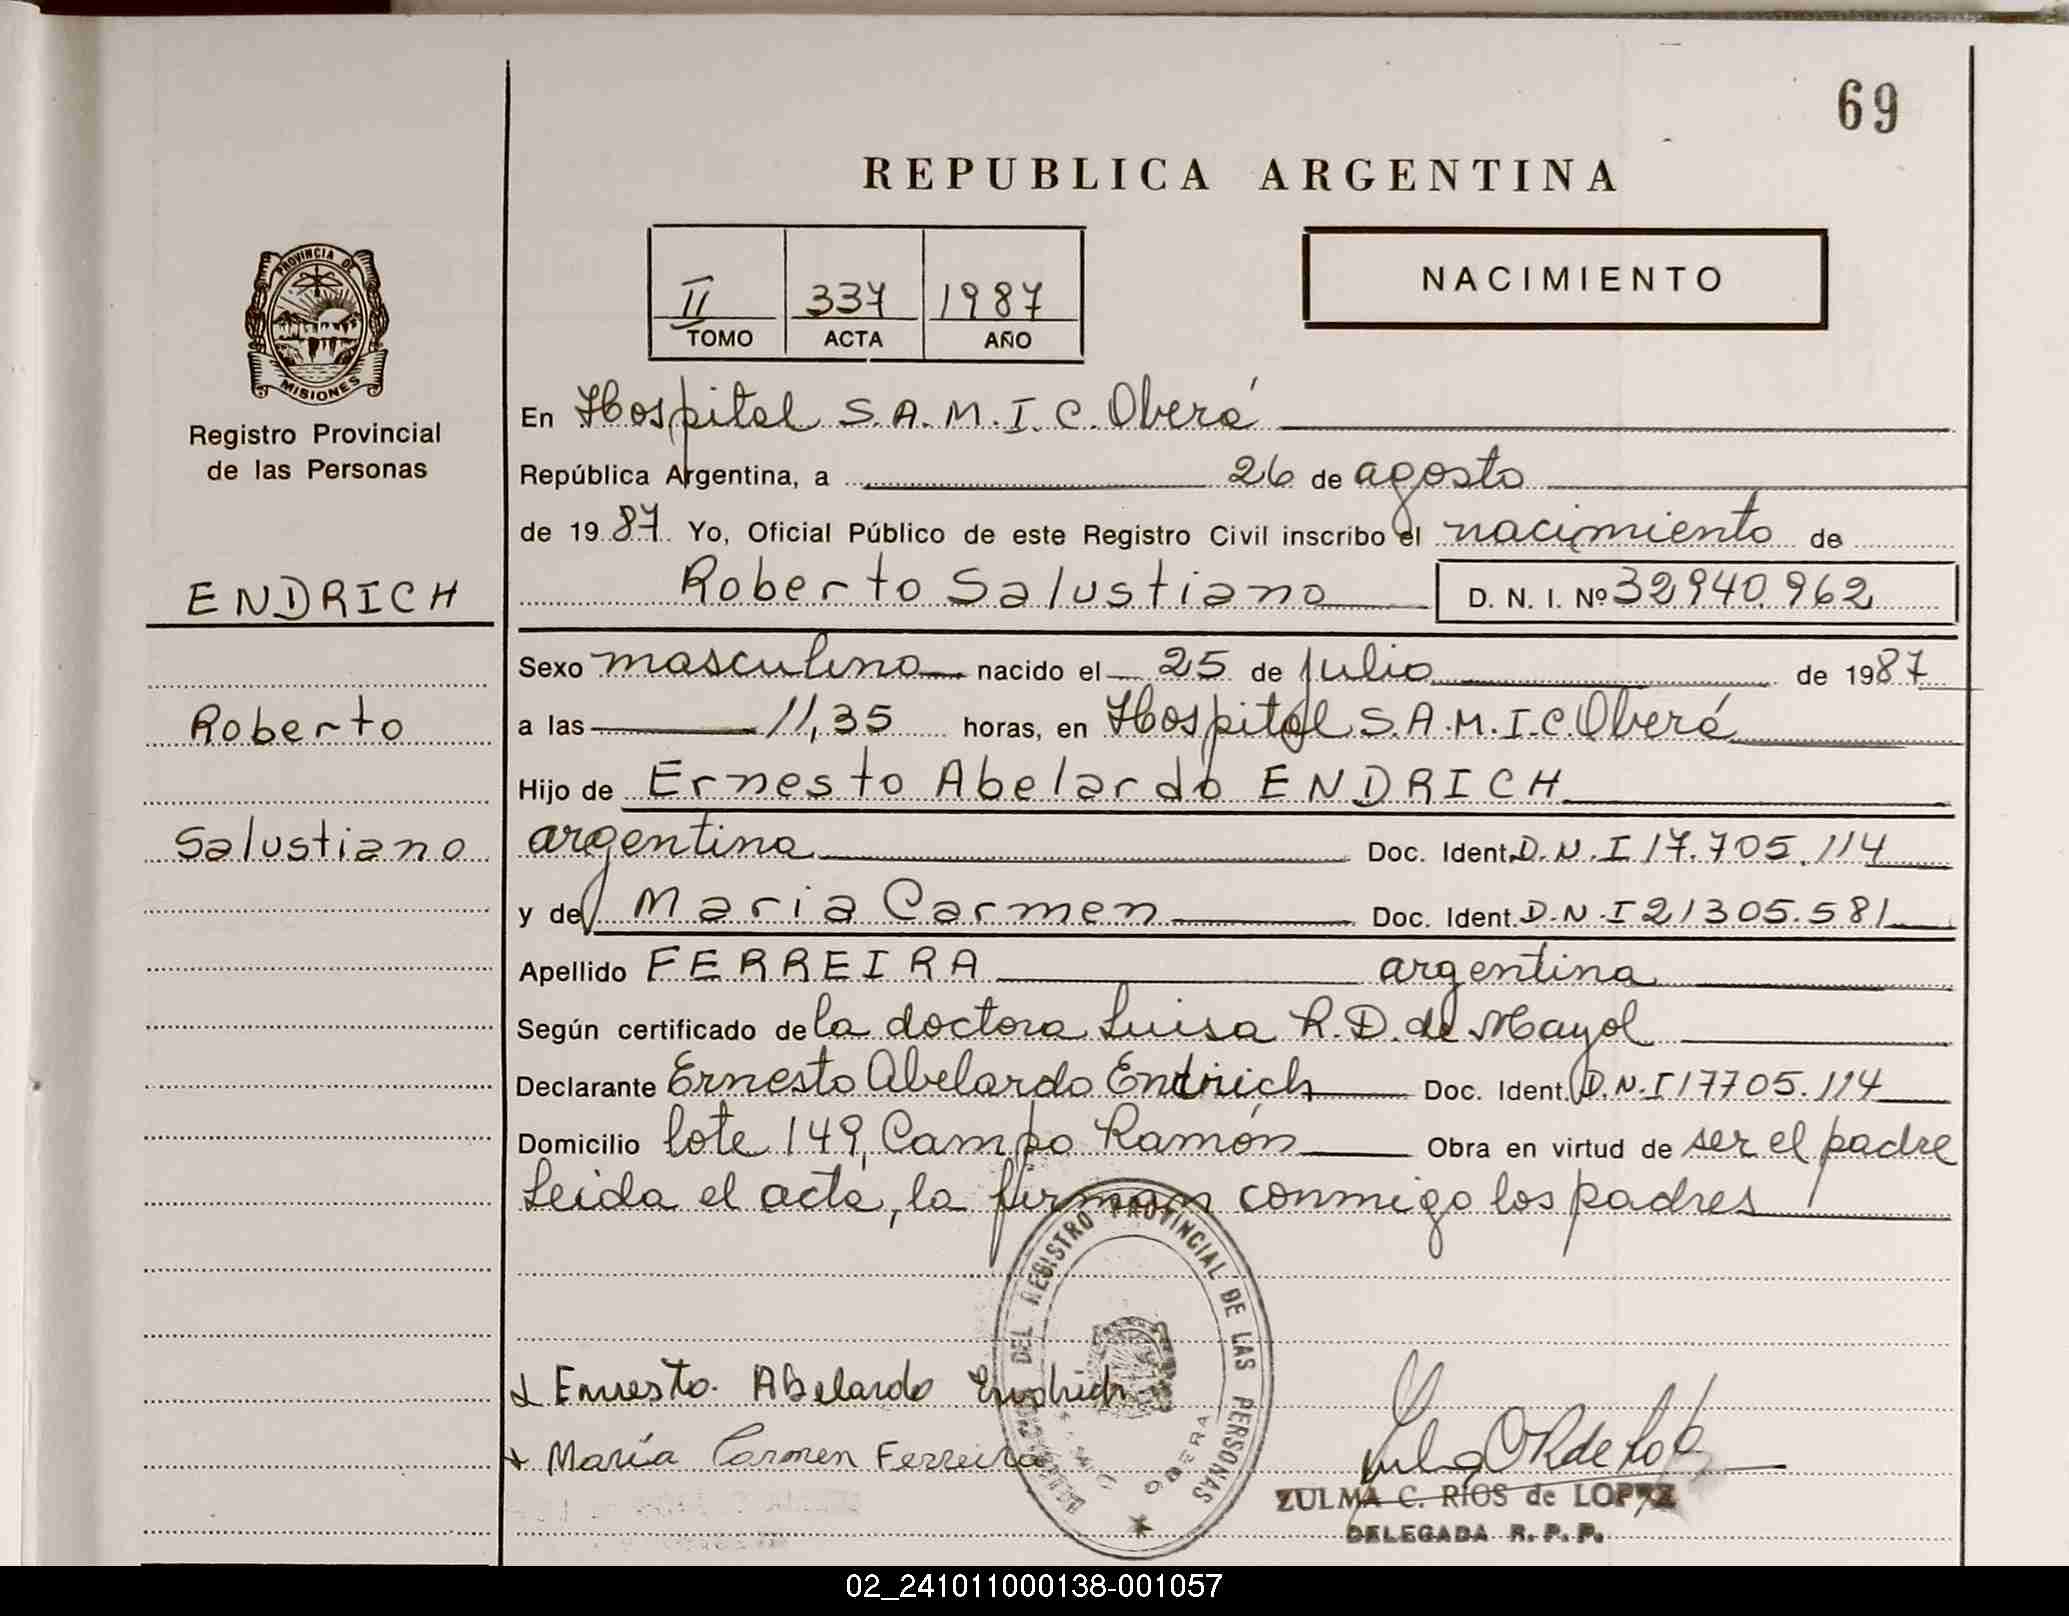 69
REPUBLICA ARGENTINA
II 337 1987
TOMO ACTA AÑO
NACIMIENTO
PROVINCIA DE
MISIONES
Registro Provincial
de las Personas
ENDRICH
Roberto
Salustiano
En Hospital S.A.M.I.C. Oberá
República Argentina, a 26 de agosto
de 1987 Yo, Oficial Público de este Registro Civil inscribo el nacimiento de
Roberto Salustiano D. N. I. Nº 32940.962
Sexo masculino nacido el 25 de julio de 1987
a las 11,35 horas, en Hospital S.A.M.I.C. Oberá
Hijo de Ernesto Abelardo ENDRICH
argentina Doc. Ident. D.N.I 17.705.114
y de Maria Carmen Doc. Ident. D.N.I 21305.581
Apellido FERREIRA argentina
Según certificado de la doctora Luisa R.D. de Mayol
Declarante Ernesto Abelardo Endrich Doc. Ident. D.N.I 17705.114
Domicilio lote 149, Campo Ramón Obra en virtud de ser el padre
Leida el acta, la firman conmigo los padres
DEL REGISTRO PROVINCIAL DE LAS PERSONAS
OBERA
Ernesto. Abelardo Endrich
María Carmen Ferreira
ZULMA C. RIOS de LOPEZ
DELEGADA R. P. P.
02_241011000138-001057